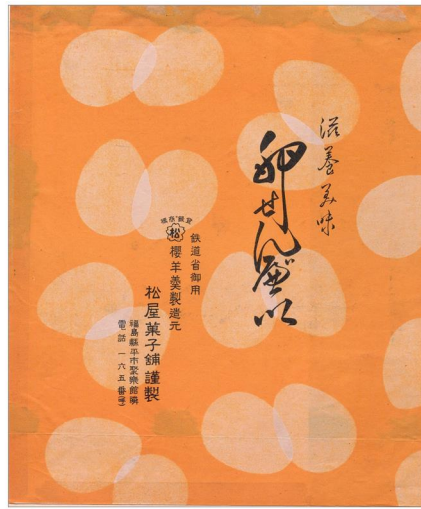 滋養美味
卵せんべい
鉄道省御用
松
櫻羊羹製造元
松屋菓子舗謹製
福島縣平市聚樂館横
電話一六五番